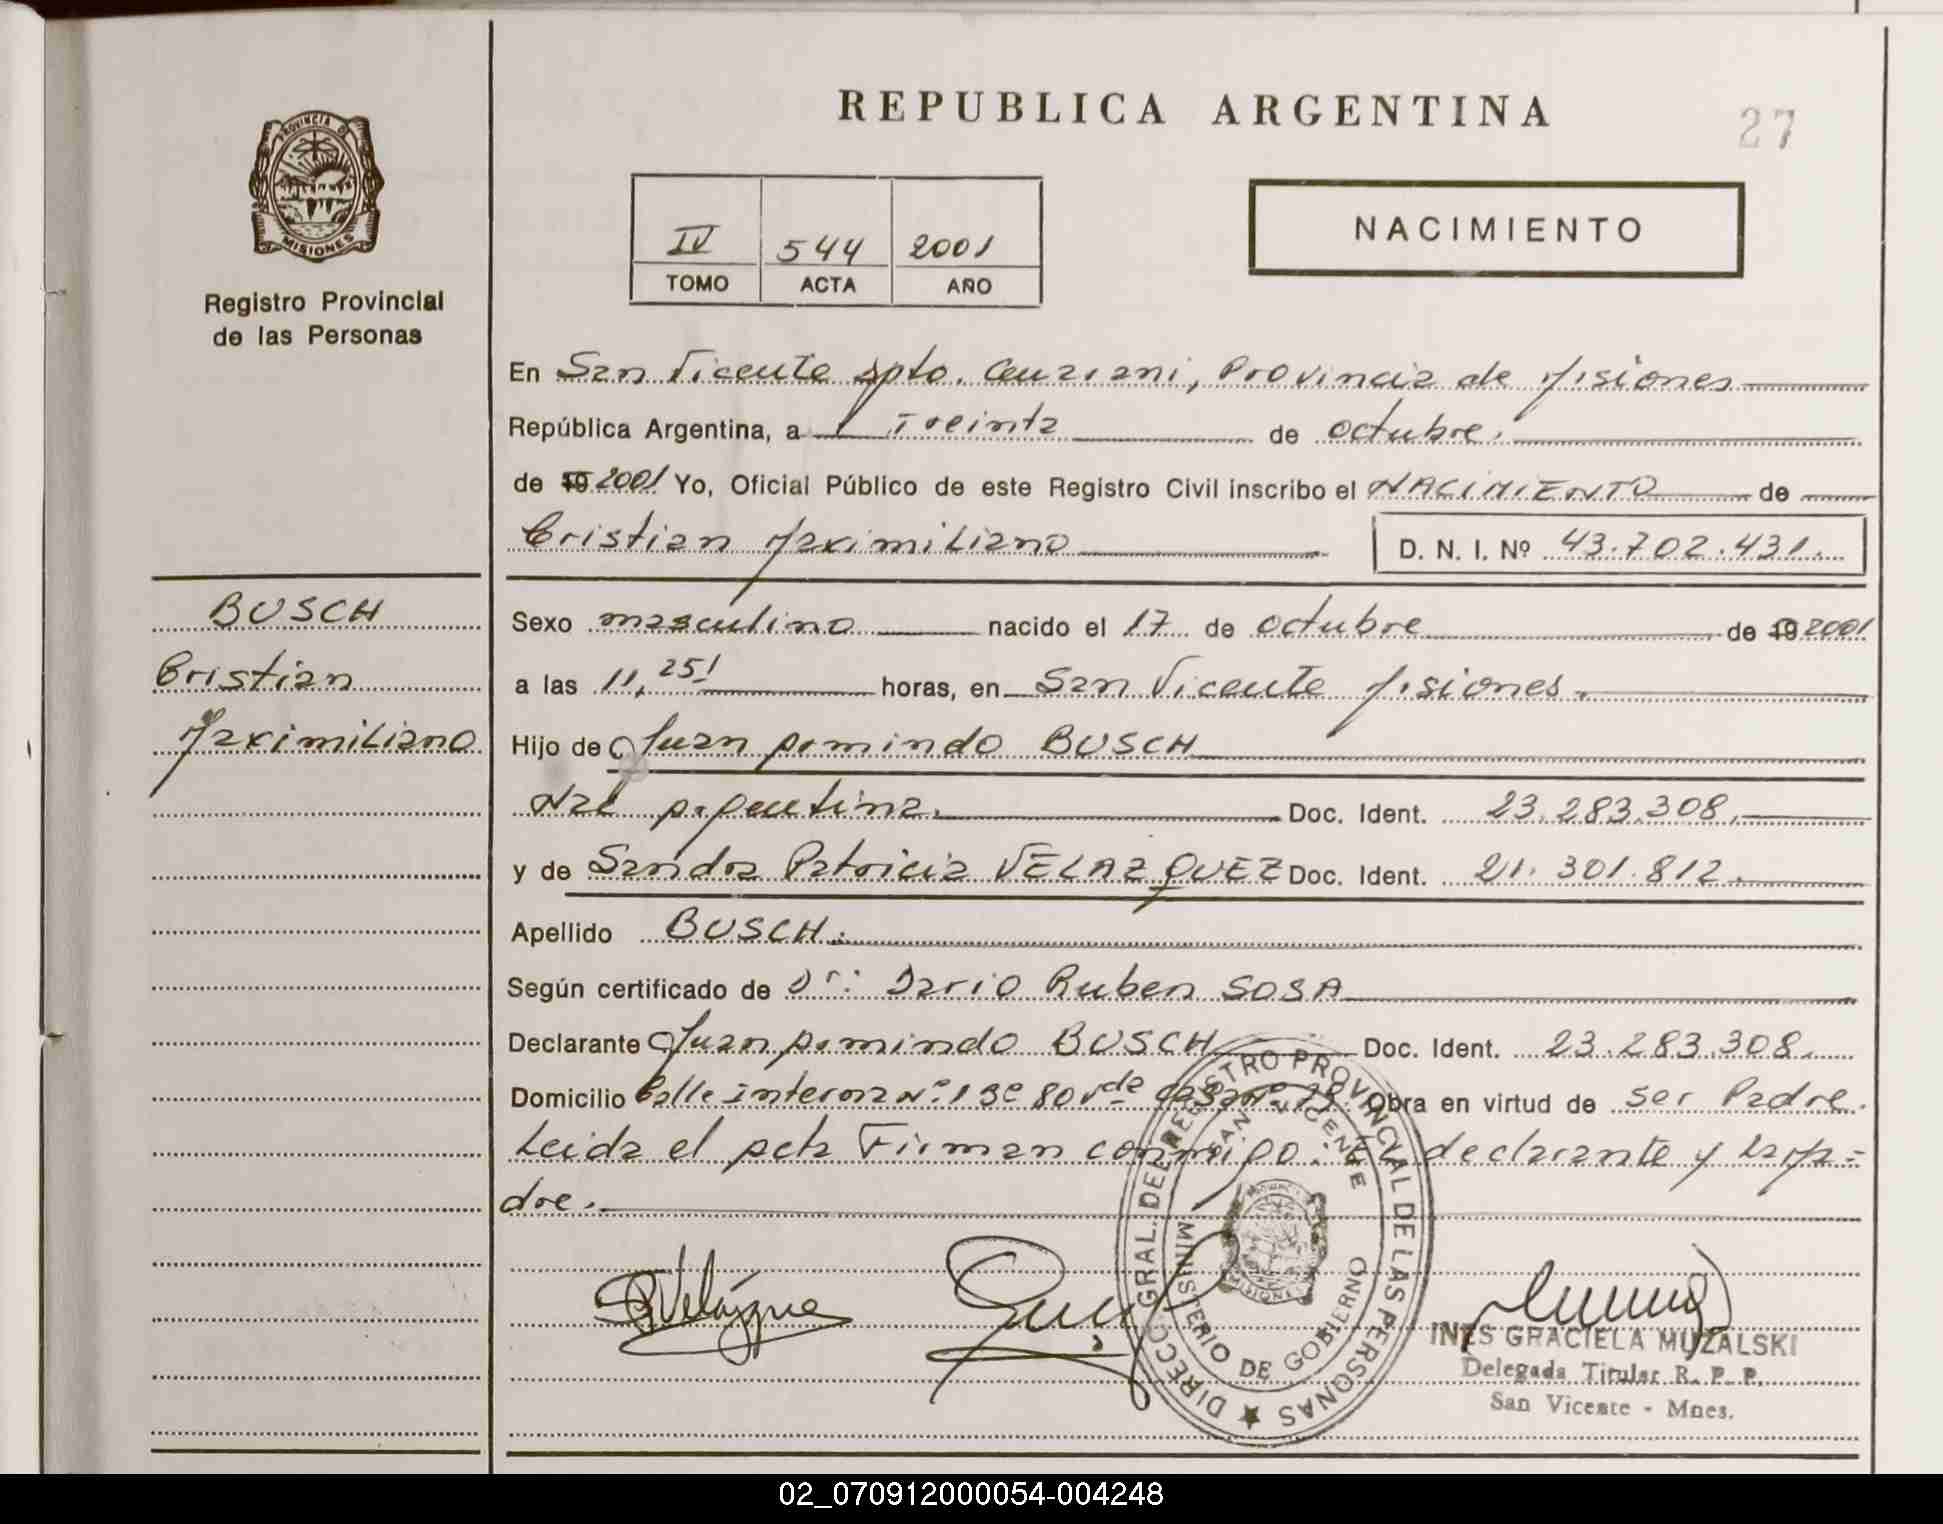 REPUBLICA ARGENTINA
27
PROVINCIA D
MISIONES
Registro Provincial
de las Personas
IV 544 2001
TOMO ACTA AÑO
NACIMIENTO
En San Vicente Dpto. Cainguás, Provincia de Misiones
República Argentina, a Treinta de octubre.
de 19 2001 Yo, Oficial Público de este Registro Civil inscribo el NACIMIENTO de
Cristian Maximiliano D. N. I. Nº 43.702.431.
BUSCH
Cristian
Maximiliano
Sexo masculino nacido el 17 de octubre de 19 2001
a las 11,25! horas, en San Vicente Misiones.
Hijo de Juan Armindo BUSCH
Nac Argentina. Doc. Ident. 23.283.308.
y de Sandra Patricia VELAZQUEZ Doc. Ident. 21.301.812.
Apellido BUSCH.
Según certificado de Dr: Dario Ruben SOSA
Declarante Juan Armindo BUSCH Doc. Ident. 23.283.308.
Domicilio Calle interna Nº 1 Se 80 Vda casa Nº 18. Obra en virtud de ser Padre.
Leida el acta Firman conmigo: El declarante y la Ma=
dre.
DIRECC. GRAL. DEL REGISTRO PROVINCIAL DE LAS PERSONAS
SAN VICENTE
MINISTERIO DE GOBIERNO
INES GRACIELA MUZALSKI
Delegada Titular R. P. P.
San Vicente - Mnes.
02_070912000054-004248